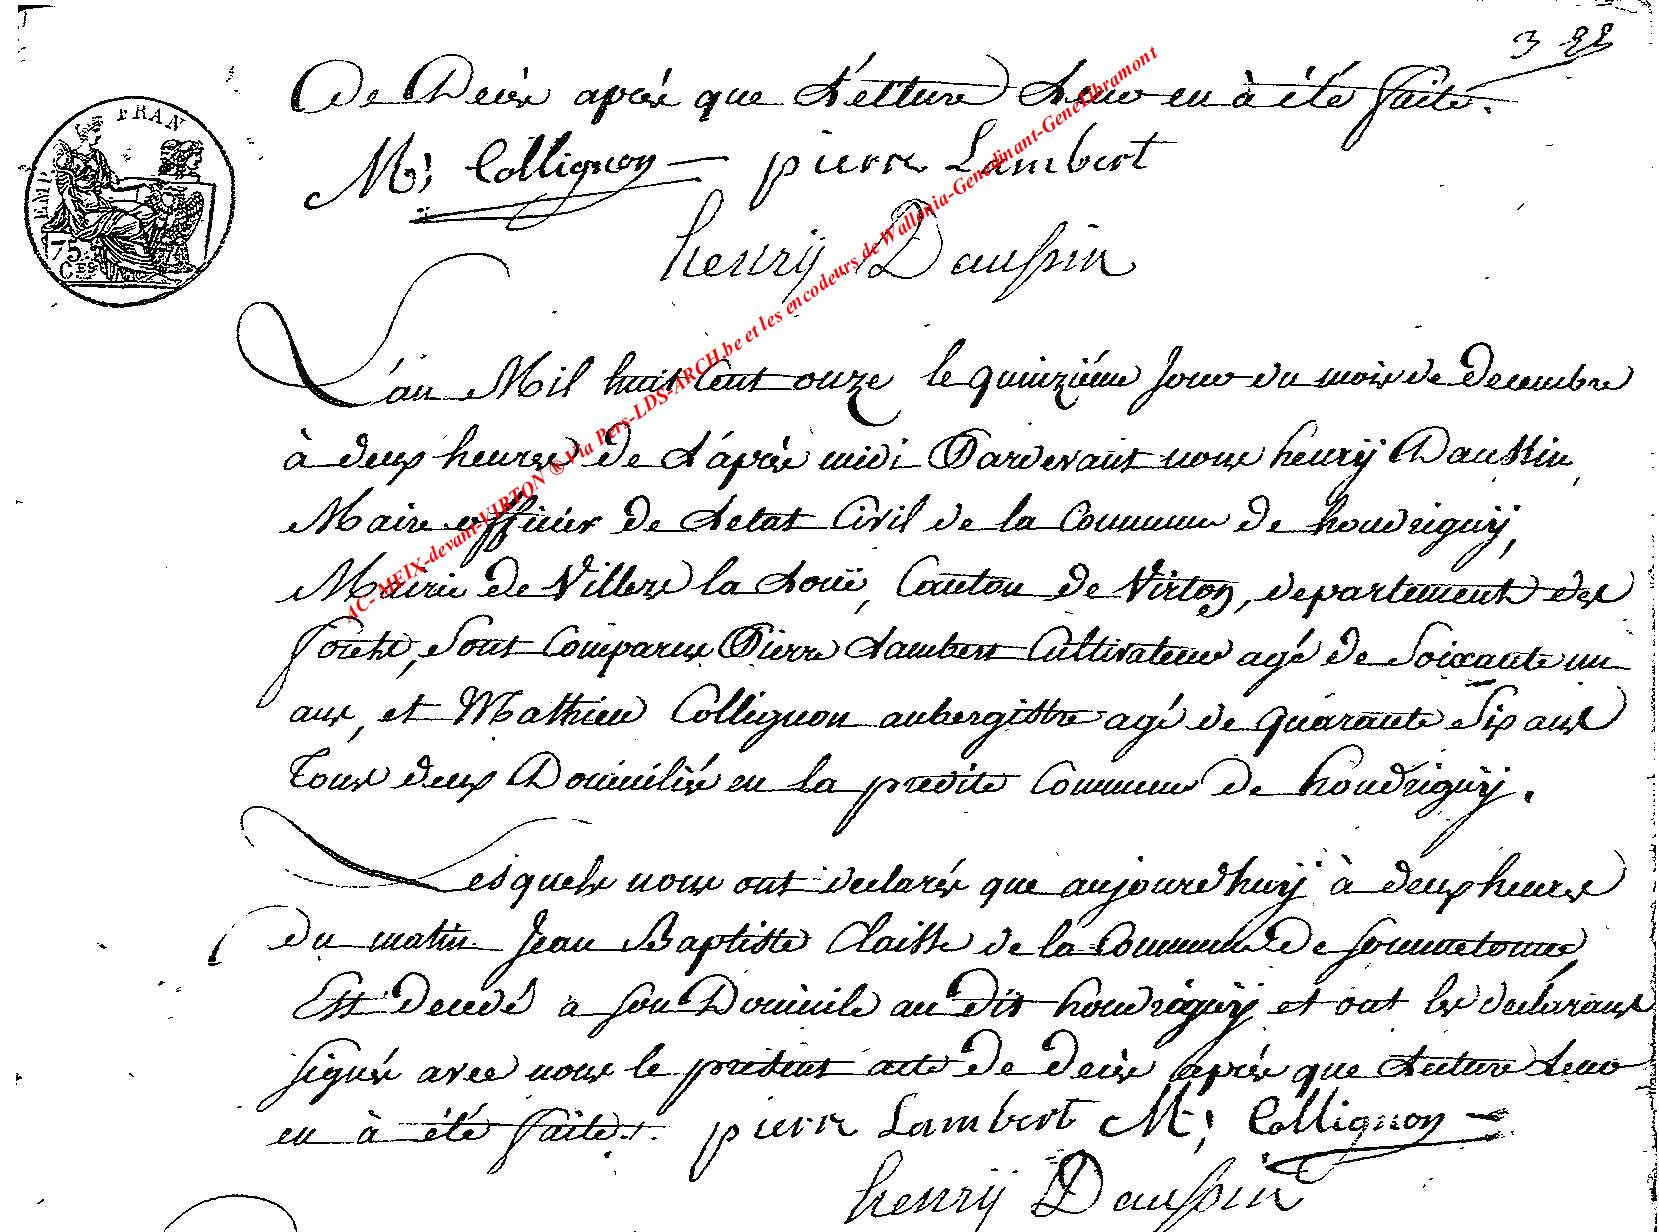 3 22
De Decès après que Lecture Leur en à été faite.
M; Collignon pierre Lambert
EMP. FRAN
75
CES
henrij Daussin
L'an Mil huit Cent onze le quinzième Jour du mois de decembre
à deux heures de L'après midi Pardevant nous henrÿ Daussin,
Maire officier de Letat Civil de la Commune de houdriguÿ,
Mairie de Villers la Loüe, Canton de Virton, departement des
forêts, Sont Comparus Pierre Lambert Cultivateur agé de Soixante un
ans, et Mathieu Collignon aubergistte agé de quarante Six ans
Tous deux Domiciliés en la predite Commune de houdriguÿ.
Lesquels nous ont declarés que aujourd'huÿ à deux heures
du matin Jean Baptiste Claisse de la Commune De Sommetonne,
Est decedé a son Domicile au dit houdriguÿ et ont les declarans
signés avec nous le present acte de decès après que Lecture Leur
en à été faite. pierre Lambert M; Collignon
henrij Daussin
AC- MEIX-devant-VIRTON ® Via Pers-LDS-ARCH.be et les encodeurs de Wallonia-Genedinant-GeneLibramont